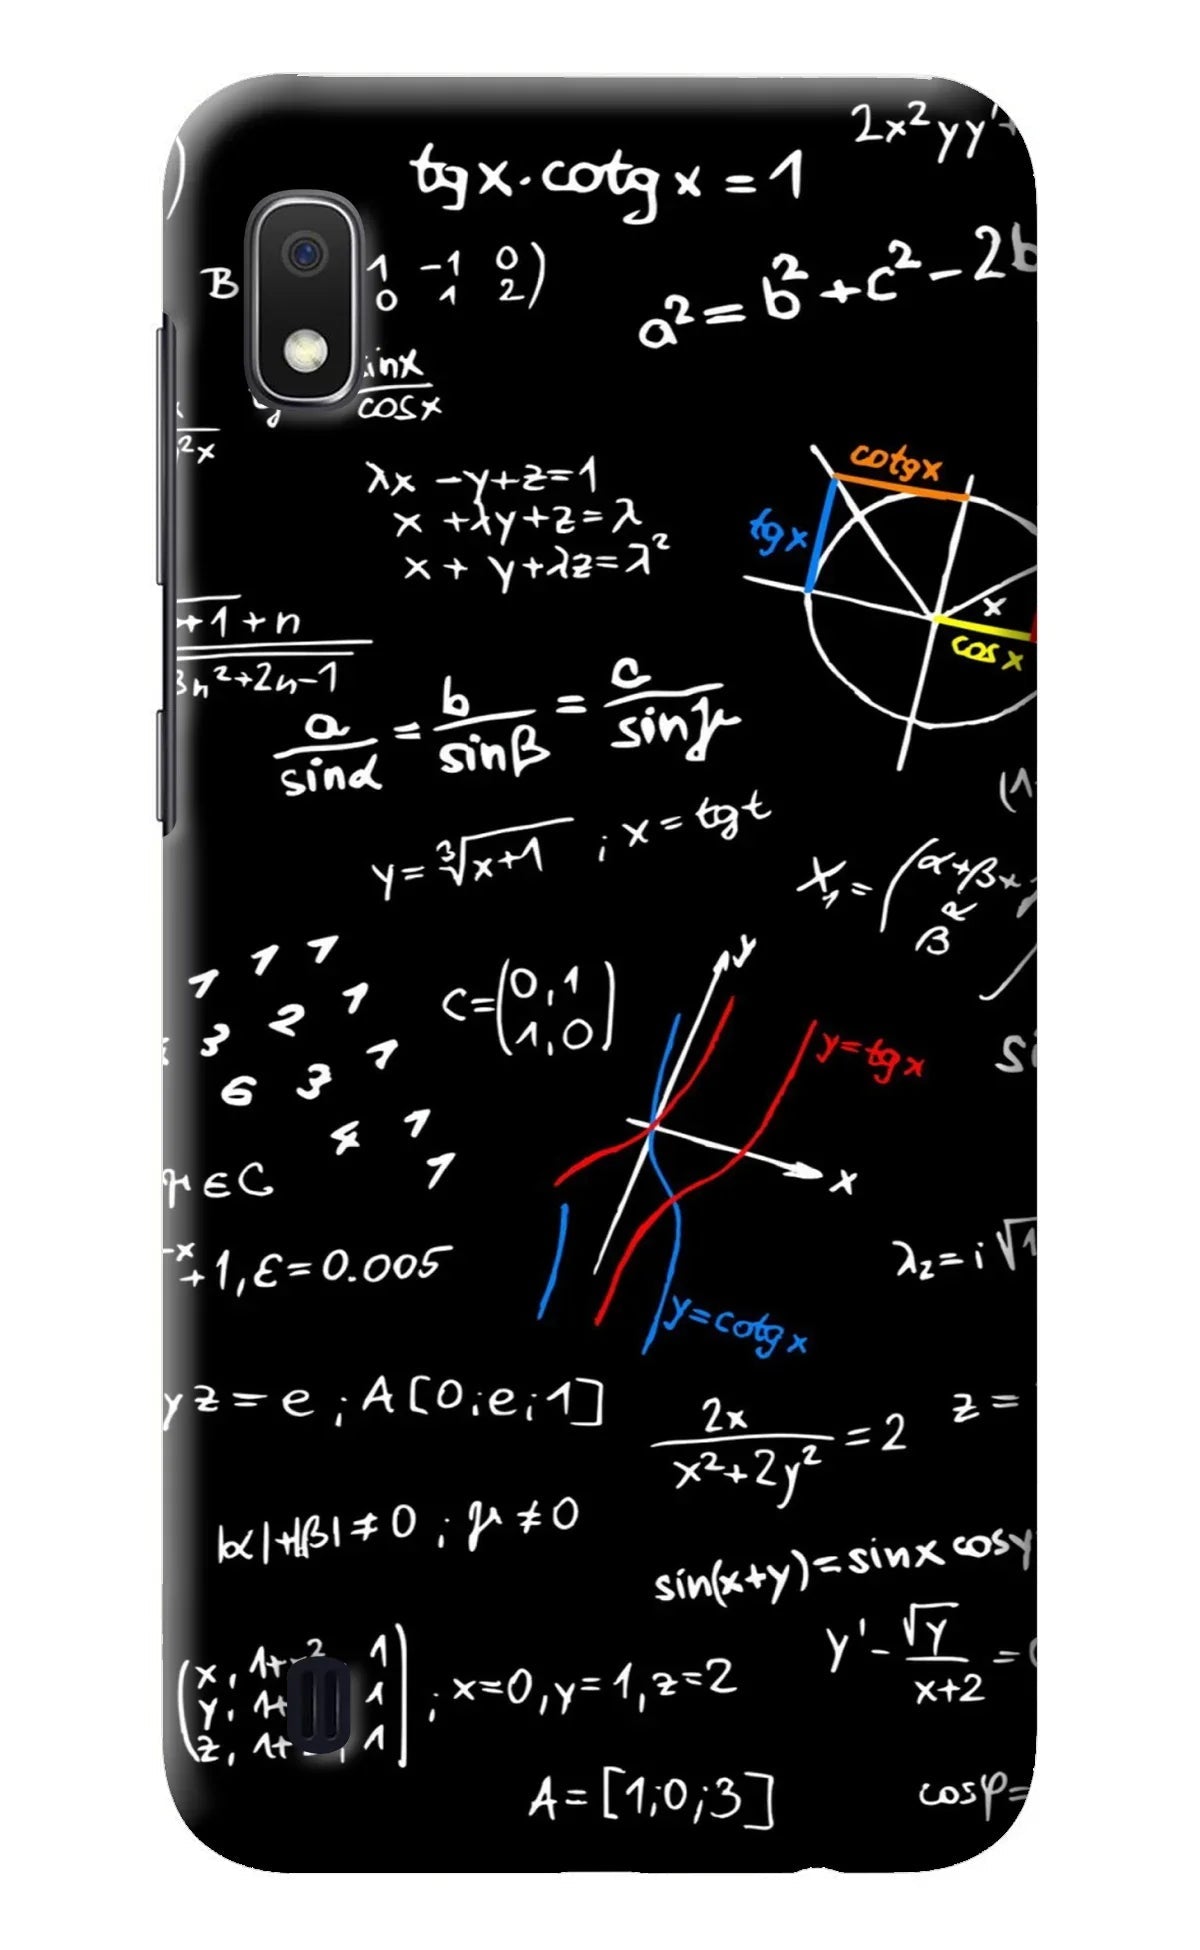 2x²yy'+
tgx·cotgx=1
B 1 -1 0
0 1 2)
a²=b²+c²-2b
inx
cosx
²x
cotgx
λx -y+z=1
x +λy+z=λ
x + y+λz=λ²
tgx
x
cosx
+1+n
3n²+2n-1
a/sinα = b/sinβ = c/sinγ
y=∛x+1 ; x=tgt
(1-
X₁=(α+βx
β
1 1 1
3 2 1
6 3 1
4 1
1
C=(0,1
1,0)
y
y=tgx
si
x
μ∈C
-x+1,ε=0.005
λ₂=i√1
y=cotgx
yz=e ; A[0;e;1]
2x/x²+2y²=2
z=
|α|+|β|≠0 ; μ≠0
sin(x+y)=sinx cosy
y'-√y/x+2=0
(x, 1+ ², 1
y, 1+ 1
z, 1+ 1) ; x=0,y=1,z=2
A=[1;0;3]
cosφ=